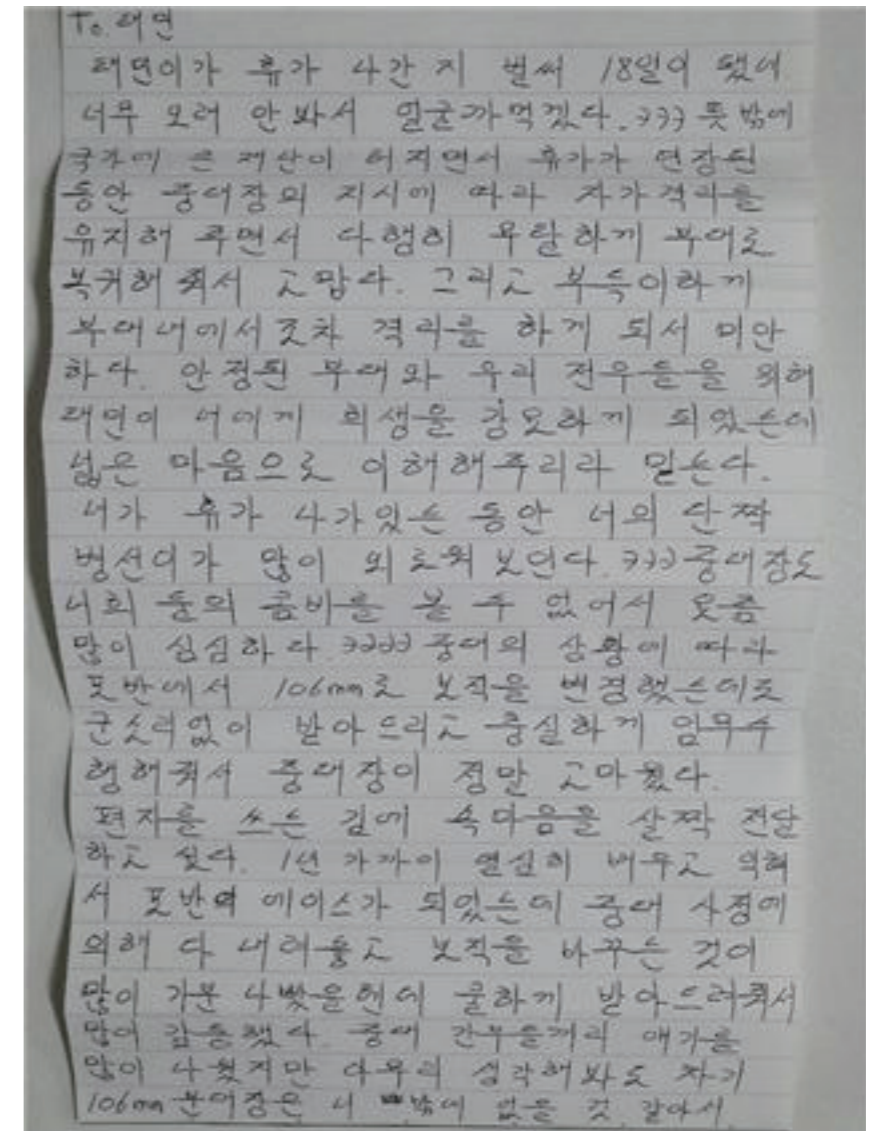 To. 태연
태연이가 휴가 나간 지 벌써 18일이 됐네
너무 오래 안 봐서 얼굴까먹겠다. ㅋㅋㅋ 뜻밖에
국가에 큰 재난이 터지면서 휴가가 연장된
동안 중대장의 지시에 따라 자가격리를
유지해 주면서 다행히 무탈하게 부대로
복귀해 줘서 고맙다. 그리고 부득이하게
부대내에서조차 격리를 하게 되서 미안
하다. 안정된 부대와 우리 전우들을 위해
태연이 너에게 희생을 강요하게 되었는데
넓은 마음으로 이해해주리라 믿는다.
너가 휴가 나가있는 동안 너의 단짝
병선이가 많이 외로워 보인다. ㅋㅋㅋ 중대장도
너희 둘의 콤비를 볼 수 없어서 요즘
많이 심심하다. ㅋㅋㅋㅋ 중대의 상황에 따라
포반에서 106mm로 보직을 변경했는데도
군소리없이 받아드리고 충실하게 임무수
행해줘서 중대장이 정말 고마웠다.
편지를 쓰는 김에 속마음을 살짝 전달
하고 싶다. 1년 가까이 열심히 배우고 익혀
서 포반의 에이스가 되었는데 중대 사정에
의해 다 내려놓고 보직을 바꾸는 것이
많이 기분 나빴을텐데 쿨하게 받아드려줘서
많이 감동했다. 중대 간부들끼리 얘기를
많이 나눴지만 아무리 생각해봐도 차기
106mm 분대장은 너 밖에 없을 것 같아서